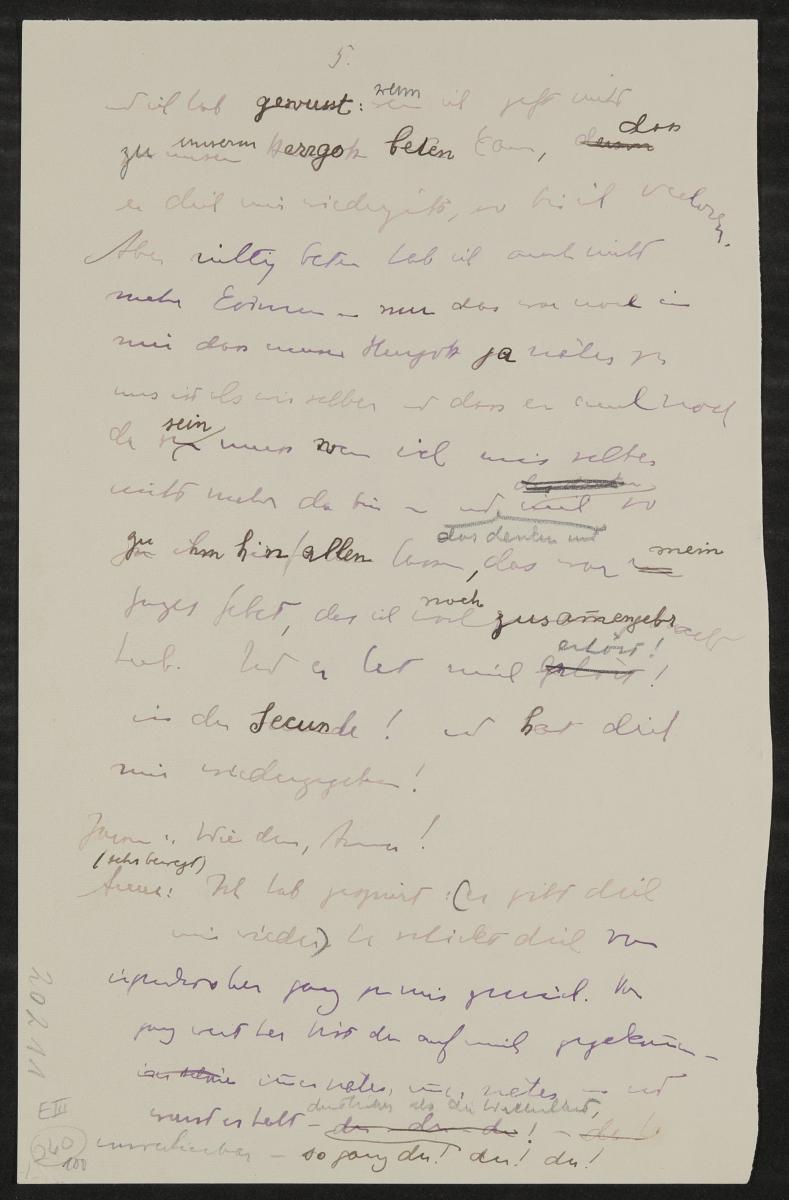 5.
und ich hab gewusst: wenn ich jetzt nicht
zu unserm Herrgott beten kann, dass
er dich mir wiedergibt, so bin ich verloren.
Aber richtig beten hab ich auch nicht
mehr können – nur das war noch in
mir dass unser Herrgott ja näher zu
uns ist als wir selber und dass er auch noch
da sein muss wenn ich mir selber
nicht mehr da bin – und so
das denken und
zu ihm hinfallen lassen, das war mein
ganzes Gebet, das ich noch zusammengebracht
hab. Und er hat mich erhört!
in der Secunde! und hat dich
mir wiedergegeben!
Wie denn, Anna!
(sehr bewegt)
Anna: Ich hab gespürt: (er gibt dich
mir wieder) Er schickt dich von
irgendwoher ganz zu mir zurück. Von
ganz weit her bist du auf mich zugekommen –
immer näher, immer näher – und
deutlicher als die Wirklichkeit,
– du – du – du! – du!
unverlierbar – so ganz du! du! du!
20211
E III
240
100